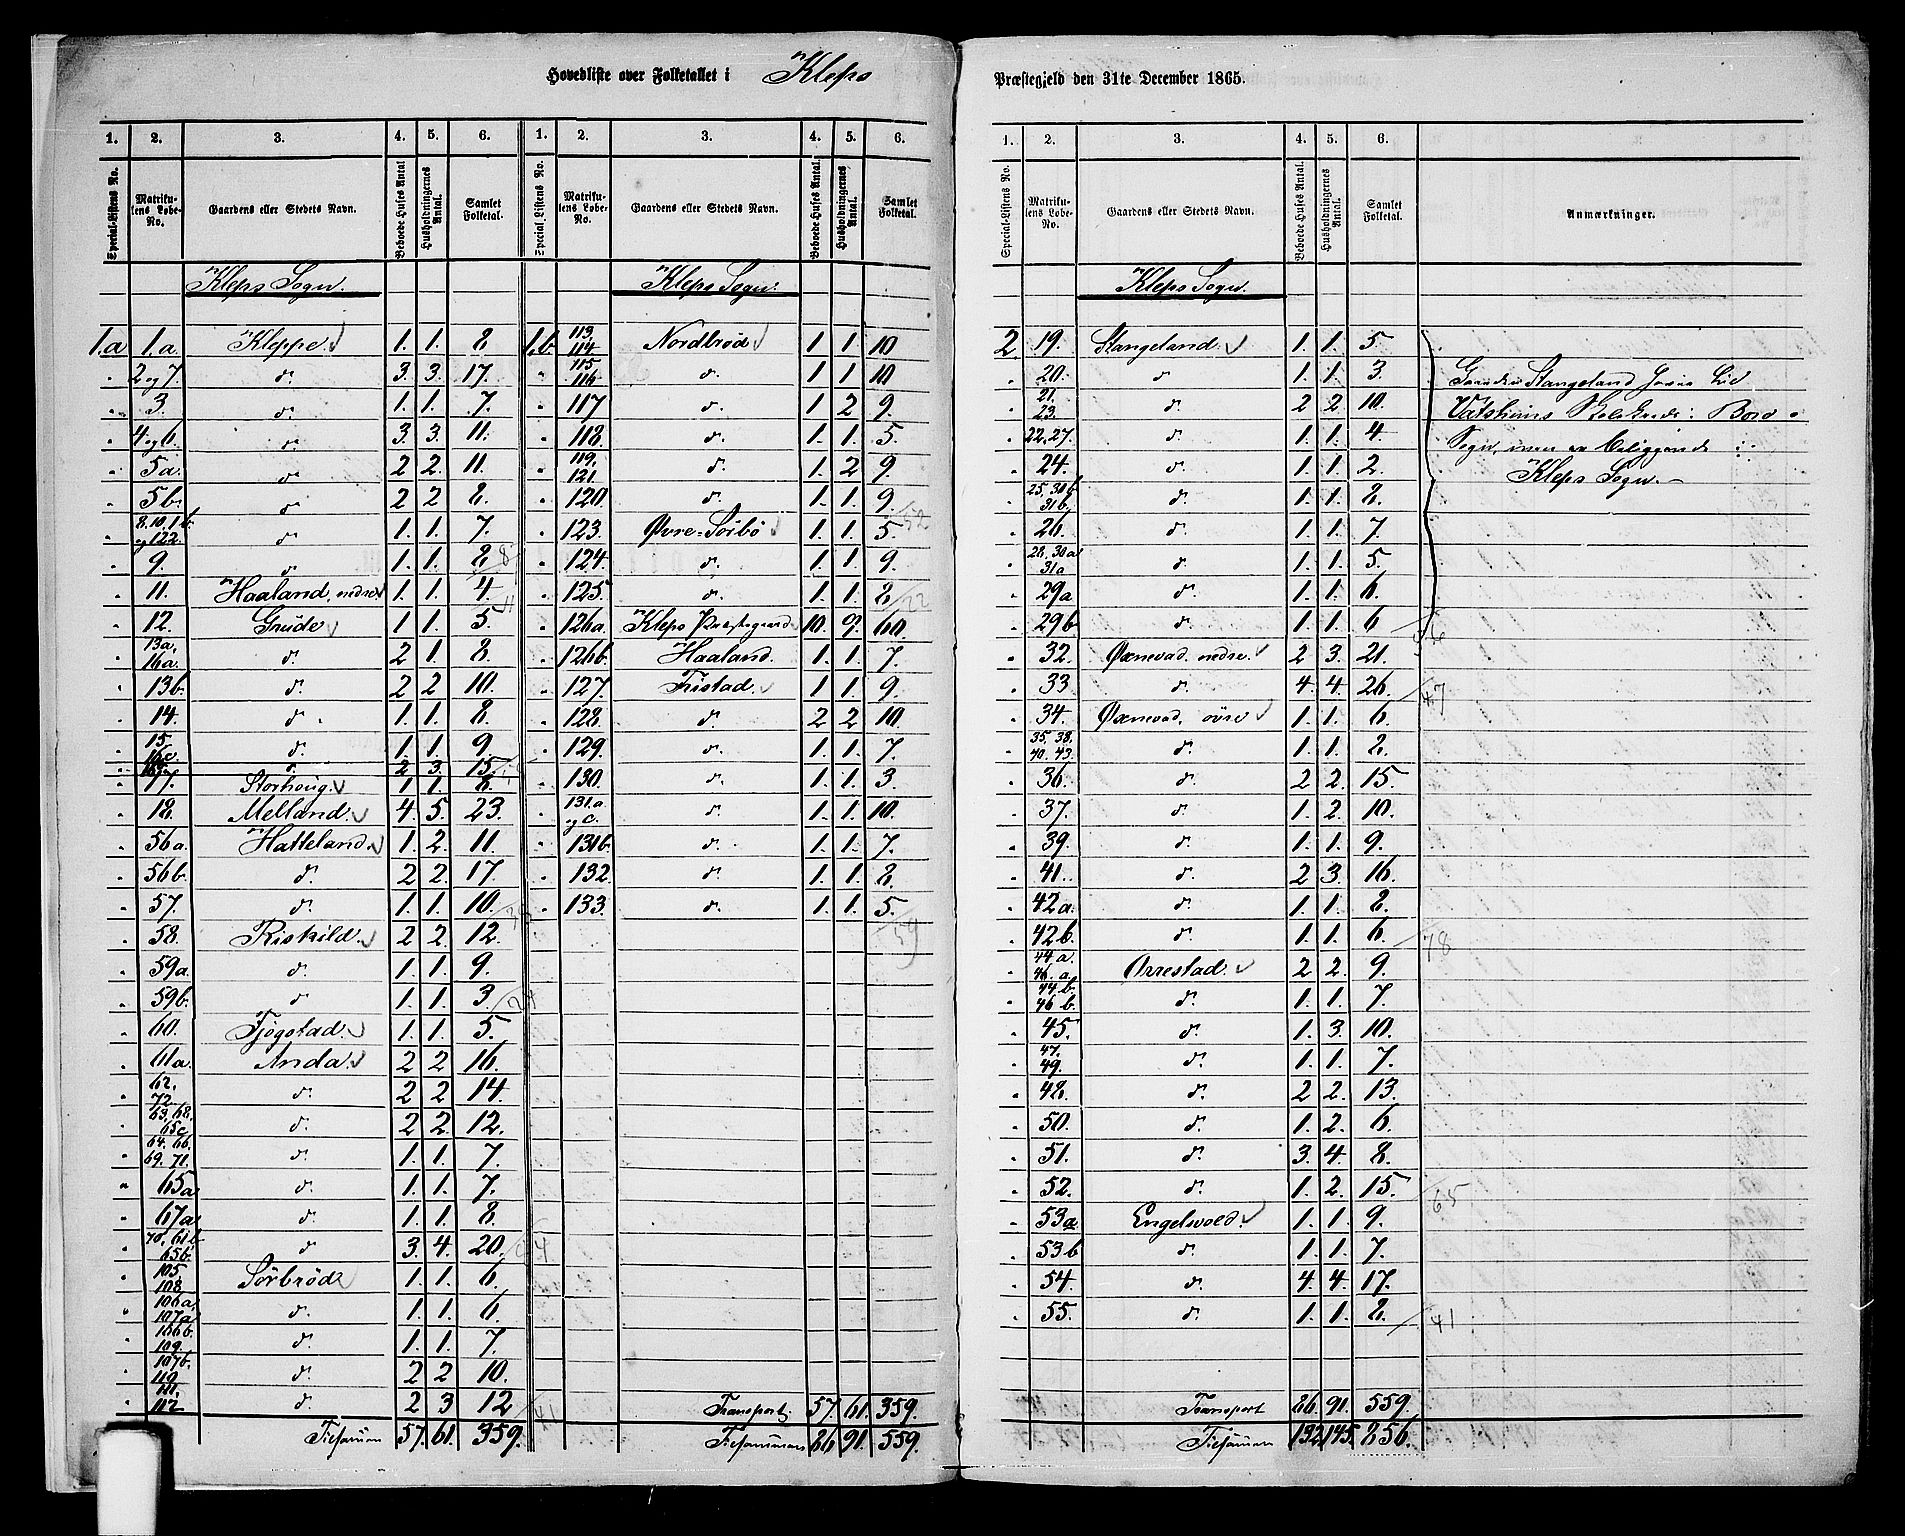 Hovedliste over Folketallet i Kleps Præstegjeld den 31te December 1865.
1. 2. 3. 4. 5. 6. 1. 2. 3. 4. 5. 6.
Special-Listens No. Matrikulens Løbe-No. Gaardens eller Stedets Navn. Beboede Huses Antal Husholdningernes Antal. Samlet Folketal. Special-Listens No. Matrikulens Løbe-No. Gaardens eller Stedets Navn. Beboede Huses Antal. Husholdningernes Antal. Samlet Folketal.
Kleps Sogn.
1.a 1.a. Kleppe 1. 1. 8.
" 2 og 7. d. 3. 3. 17.
" 3. d. 1. 1. 7.
" 4 og 6. d. 3. 3. 11.
" 5a. d. 2 2. 11.
" 5b. d. 2 2 8.
" 8. 10. 1b. og 122. d. 1. 1. 7.
" 9. d. 1. 1. 8
" 11. Haaland, nedre 1. 1. 4.
" 12. Grude 1 1. 5.
" 13a, 16a. d. 2 1. 8.
" 13b. d. 2 2 10.
" 14. d. 1. 1. 8.
" 15. 16c. d. 1. 1. 9.
" 16b. d. 2 3. 15.
" 17. Storhoug. 1 1. 8.
" 18. Melland. 4. 5. 23.
" 56a. Hatteland. 1. 2. 11.
" 56b. d. 2 2. 17.
" 57. d. 1. 1. 10.
" 58. Riskild. 2 2. 12.
" 59a. d. 1. 1. 9.
" 59b. d. 1. 1. 3.
" 60. Tjøgstad. 1. 1. 5.
" 61a. Anda. 2 2 16.
" 62. 72. d. 2 2 14.
" 63. 68. 65c d. 2 2 12.
" 64. 66. 69. 71. d. 1. 1. 7.
" 65a d. 1. 1. 7.
" 67a d. 1. 1. 8.
" 70. 61b 65b. d. 3. 4. 20.
" 105 108 Sørbrød 1. 1. 6.
" 106a, 107a d. 1. 1. 6.
" 106b. 109. d. 1. 1. 7.
" 107b. 110. d. 2 2 10.
" 111. 112 d. 2 3 12
Tilsammen 57. 61. 359.
Kleps Sogn.
1.b 113. 114 Nordbrød 1 1 10
" 115 116 d. 1 1 10
" 117 d. 1 2 9.
" 118. d. 1. 1. 5.
" 119. 121. d. 1. 2 9.
" 120. d. 1. 1. 9.
" 123. Øvre-Sørbø 1. 1. 5. 52
" 124. d. 1. 1. 9.
" 125. d. 1. 1 8 22
" 126a. Kleps Præstegaard 10. 9. 60.
" 126b. Haaland. 1. 1. 7.
" 127. Tristad. 1. 1. 9.
" 128. d. 2 2 10.
" 129. d. 1. 1. 7.
" 130. d. 1. 1. 3.
" 131.a. og c. d. 1. 1. 10.
" 131b. d. 1. 1. 7.
" 132. d. 1. 1. 8.
" 133. d. 1. 1. 5.
59
Transport 57. 61. 359.
Tilsammen 86 91. 559.
1. 2. 3. 4. 5. 6.
Special-Listens No. Matrikulens Løbe-No. Gaardens eller Stedets Navn. Beboede Huses Antal. Husholdningernes Antal. Samlet Folketal. Anmærkninger.
Kleps Sogn.
2 19. Stangeland. 1. 1. 5
" 20. d. 1. 1. 3.
" 21. 23. d. 2 2. 10.
" 22. 27. d. 1. 1. 4
" 24. d. 1. 1. 2.
" 25. 30b 31b. d. 1. 1. 8.
" 26. d. 1. 1. 7.
" 28. 30a 31a d. 1. 1. 5.
" 29a d. 1. 1. 6.
" 29b d. 1. 1. 6 56
" 32. Øxnevad. nedre. 2 3. 21.
" 33 d. 4. 4. 26. 47
" 34. Øxnevad. øvre 1. 1. 6.
" 35. 38. 40. 43. d. 1. 1. 8.
" 36. d. 2 2. 15.
" 37. d. 1. 2. 10.
" 39. d. 1. 1. 9.
" 41. d. 2 3. 16.
" 42a. d. 1. 1. 8.
" 42b. d. 1. 1. 6. 78
" 44a. 46.a. Orrestad. 2 2. 9.
" 44b. 46b. d. 1. 1. 7.
" 45. d. 1. 3. 10.
" 47. 49. d. 1. 1. 7.
" 48. d. 2 2. 13.
" 50. d. 1. 2. 6.
" 51. d. 3. 4. 8.
" 52. d. 1. 2. 15. 65
" 53a Engelsvold. 1. 1. 9.
" 53b d. 1. 1. 7.
" 54. d. 4. 4. 17.
" 55. d. 1. 1. 8. 41
Transport 86. 91. 559.
Tilsammen 132 145. 856.
Stangeland
Sogn, men er beliggende i
Kleps Sogn.